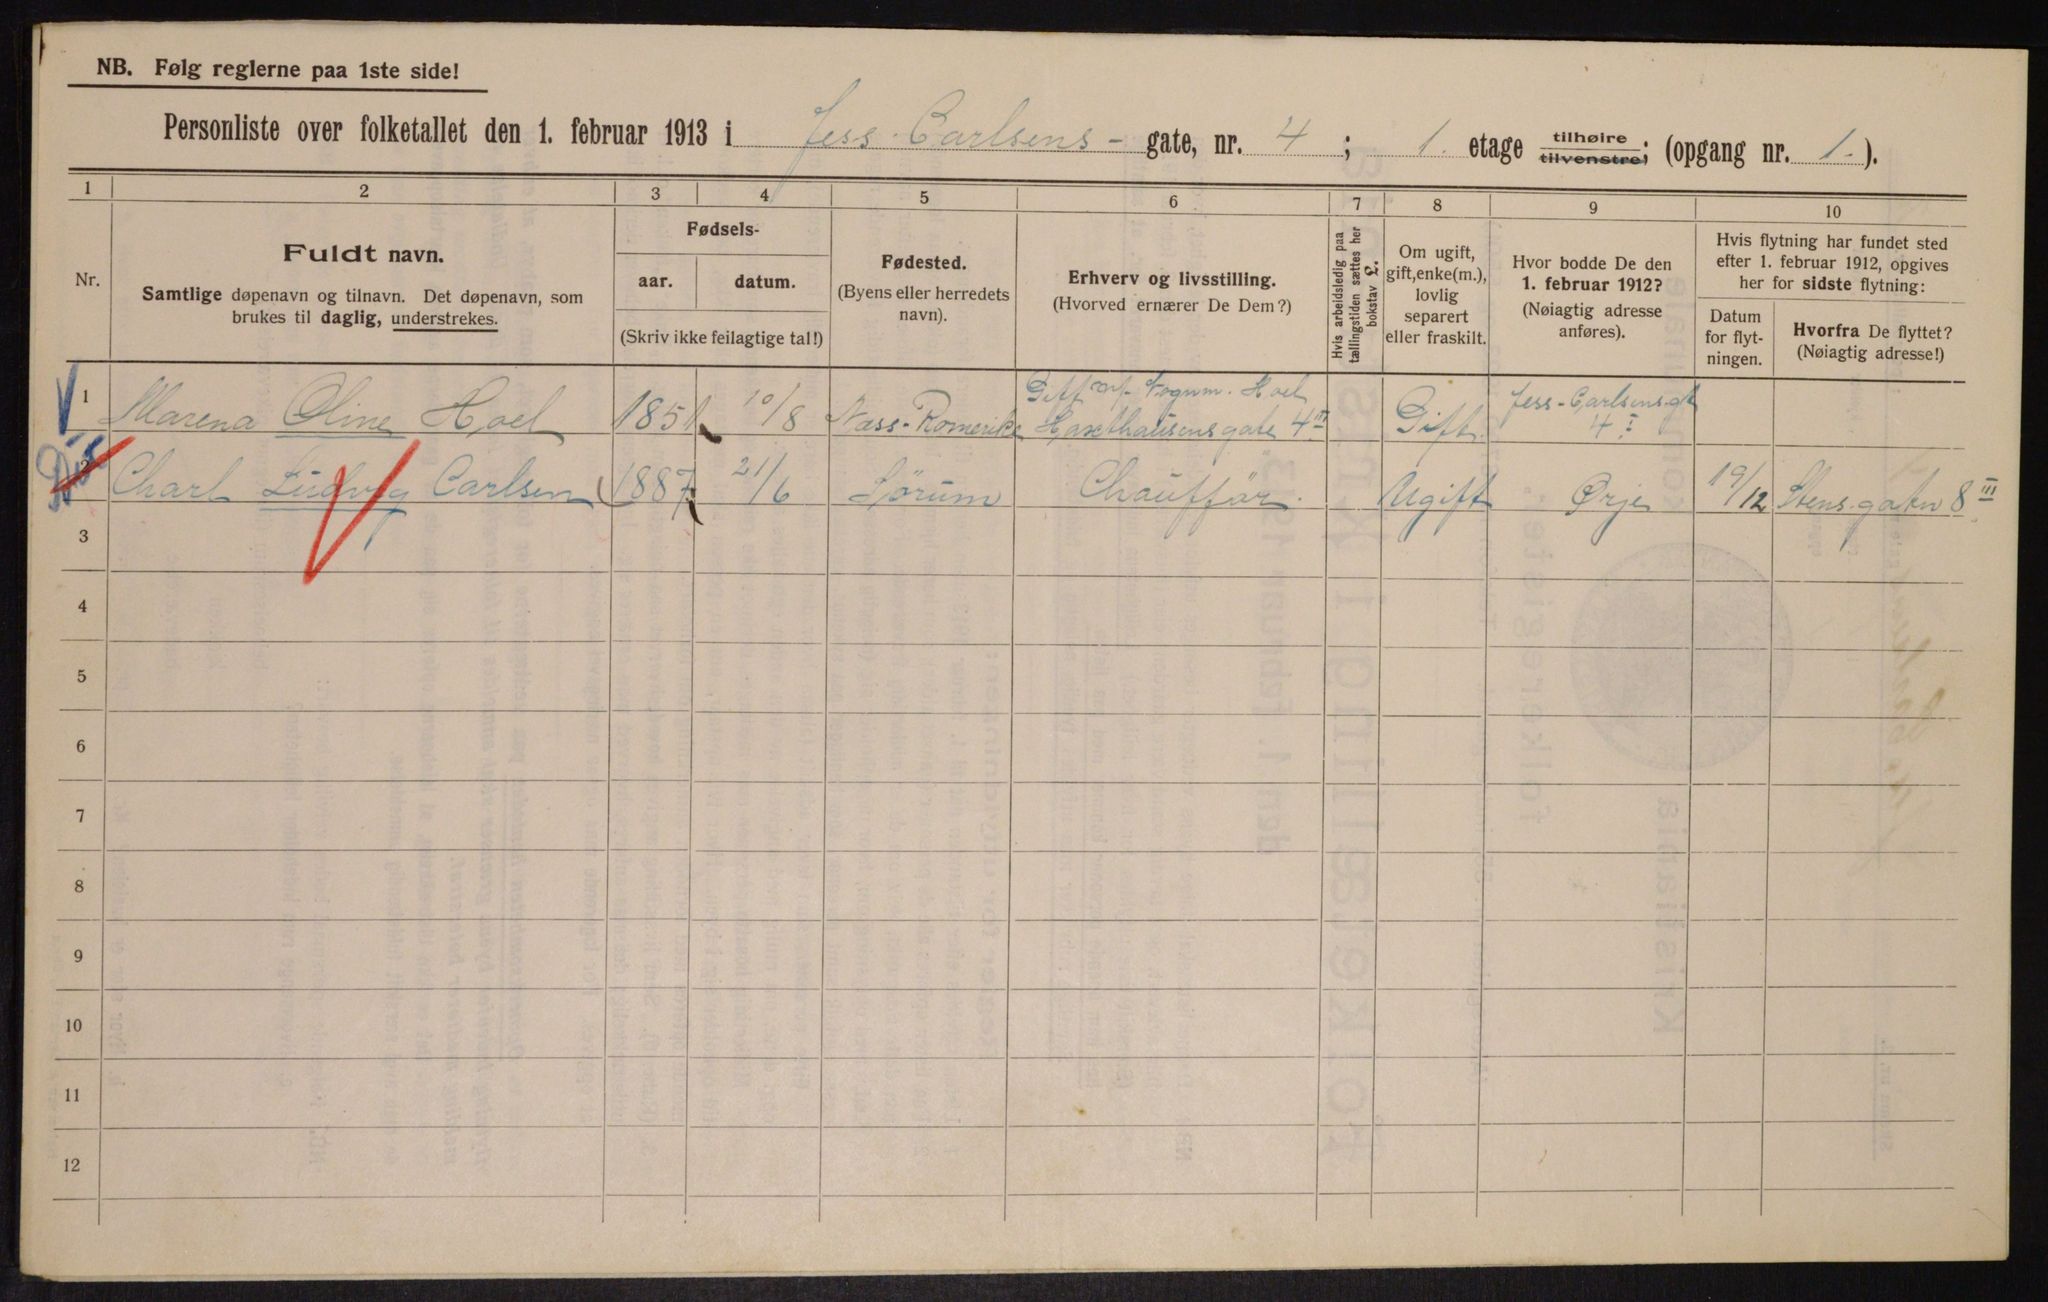 NB. Følg reglerne paa 1ste side!
Personliste over folketallet den 1. februar 1913 i Jess Carlsens- gate, nr. 4 ; 1. etage tilhøire tilvenstre; (opgang nr. 1. ).
1 2 3 4 5 6 7 8 9 10
Nr.
Fuldt navn.
Samtlige døpenavn og tilnavn. Det døpenavn, som
brukes til daglig, understrekes.
Fødsels-
aar. datum.
(Skriv ikke feilagtige tal!)
Fødested.
(Byens eller herredets
navn).
Erhverv og livsstilling.
(Hvorved ernærer De Dem?)
Hvis arbeidsledig paa
tællingstiden sættes her
bokstav L.
Om ugift,
gift, enke(m.),
lovlig
separert
eller fraskilt.
Hvor bodde De den
1. februar 1912?
(Nøiagtig adresse
anføres).
Hvis flytning har fundet sted
efter 1. februar 1912, opgives
her for sidste flytning:
Datum
for flyt-
ningen.
Hvorfra De flyttet?
(Nøiagtig adresse!)
1 Marena Oline Hoel 1851 10/8 Næss-Romerike Gift m/ Vognm. Hoel
Haxthausensgate 4 III Gift. Jess-Carlsensgt
4 I
2 Charl Ludvig Carlsen 1887 21/6 Sørum Chauffør. Ugift Ørje 19/12 Stensgaten 8 III
3
4
5
6
7
8
9
10
11
12